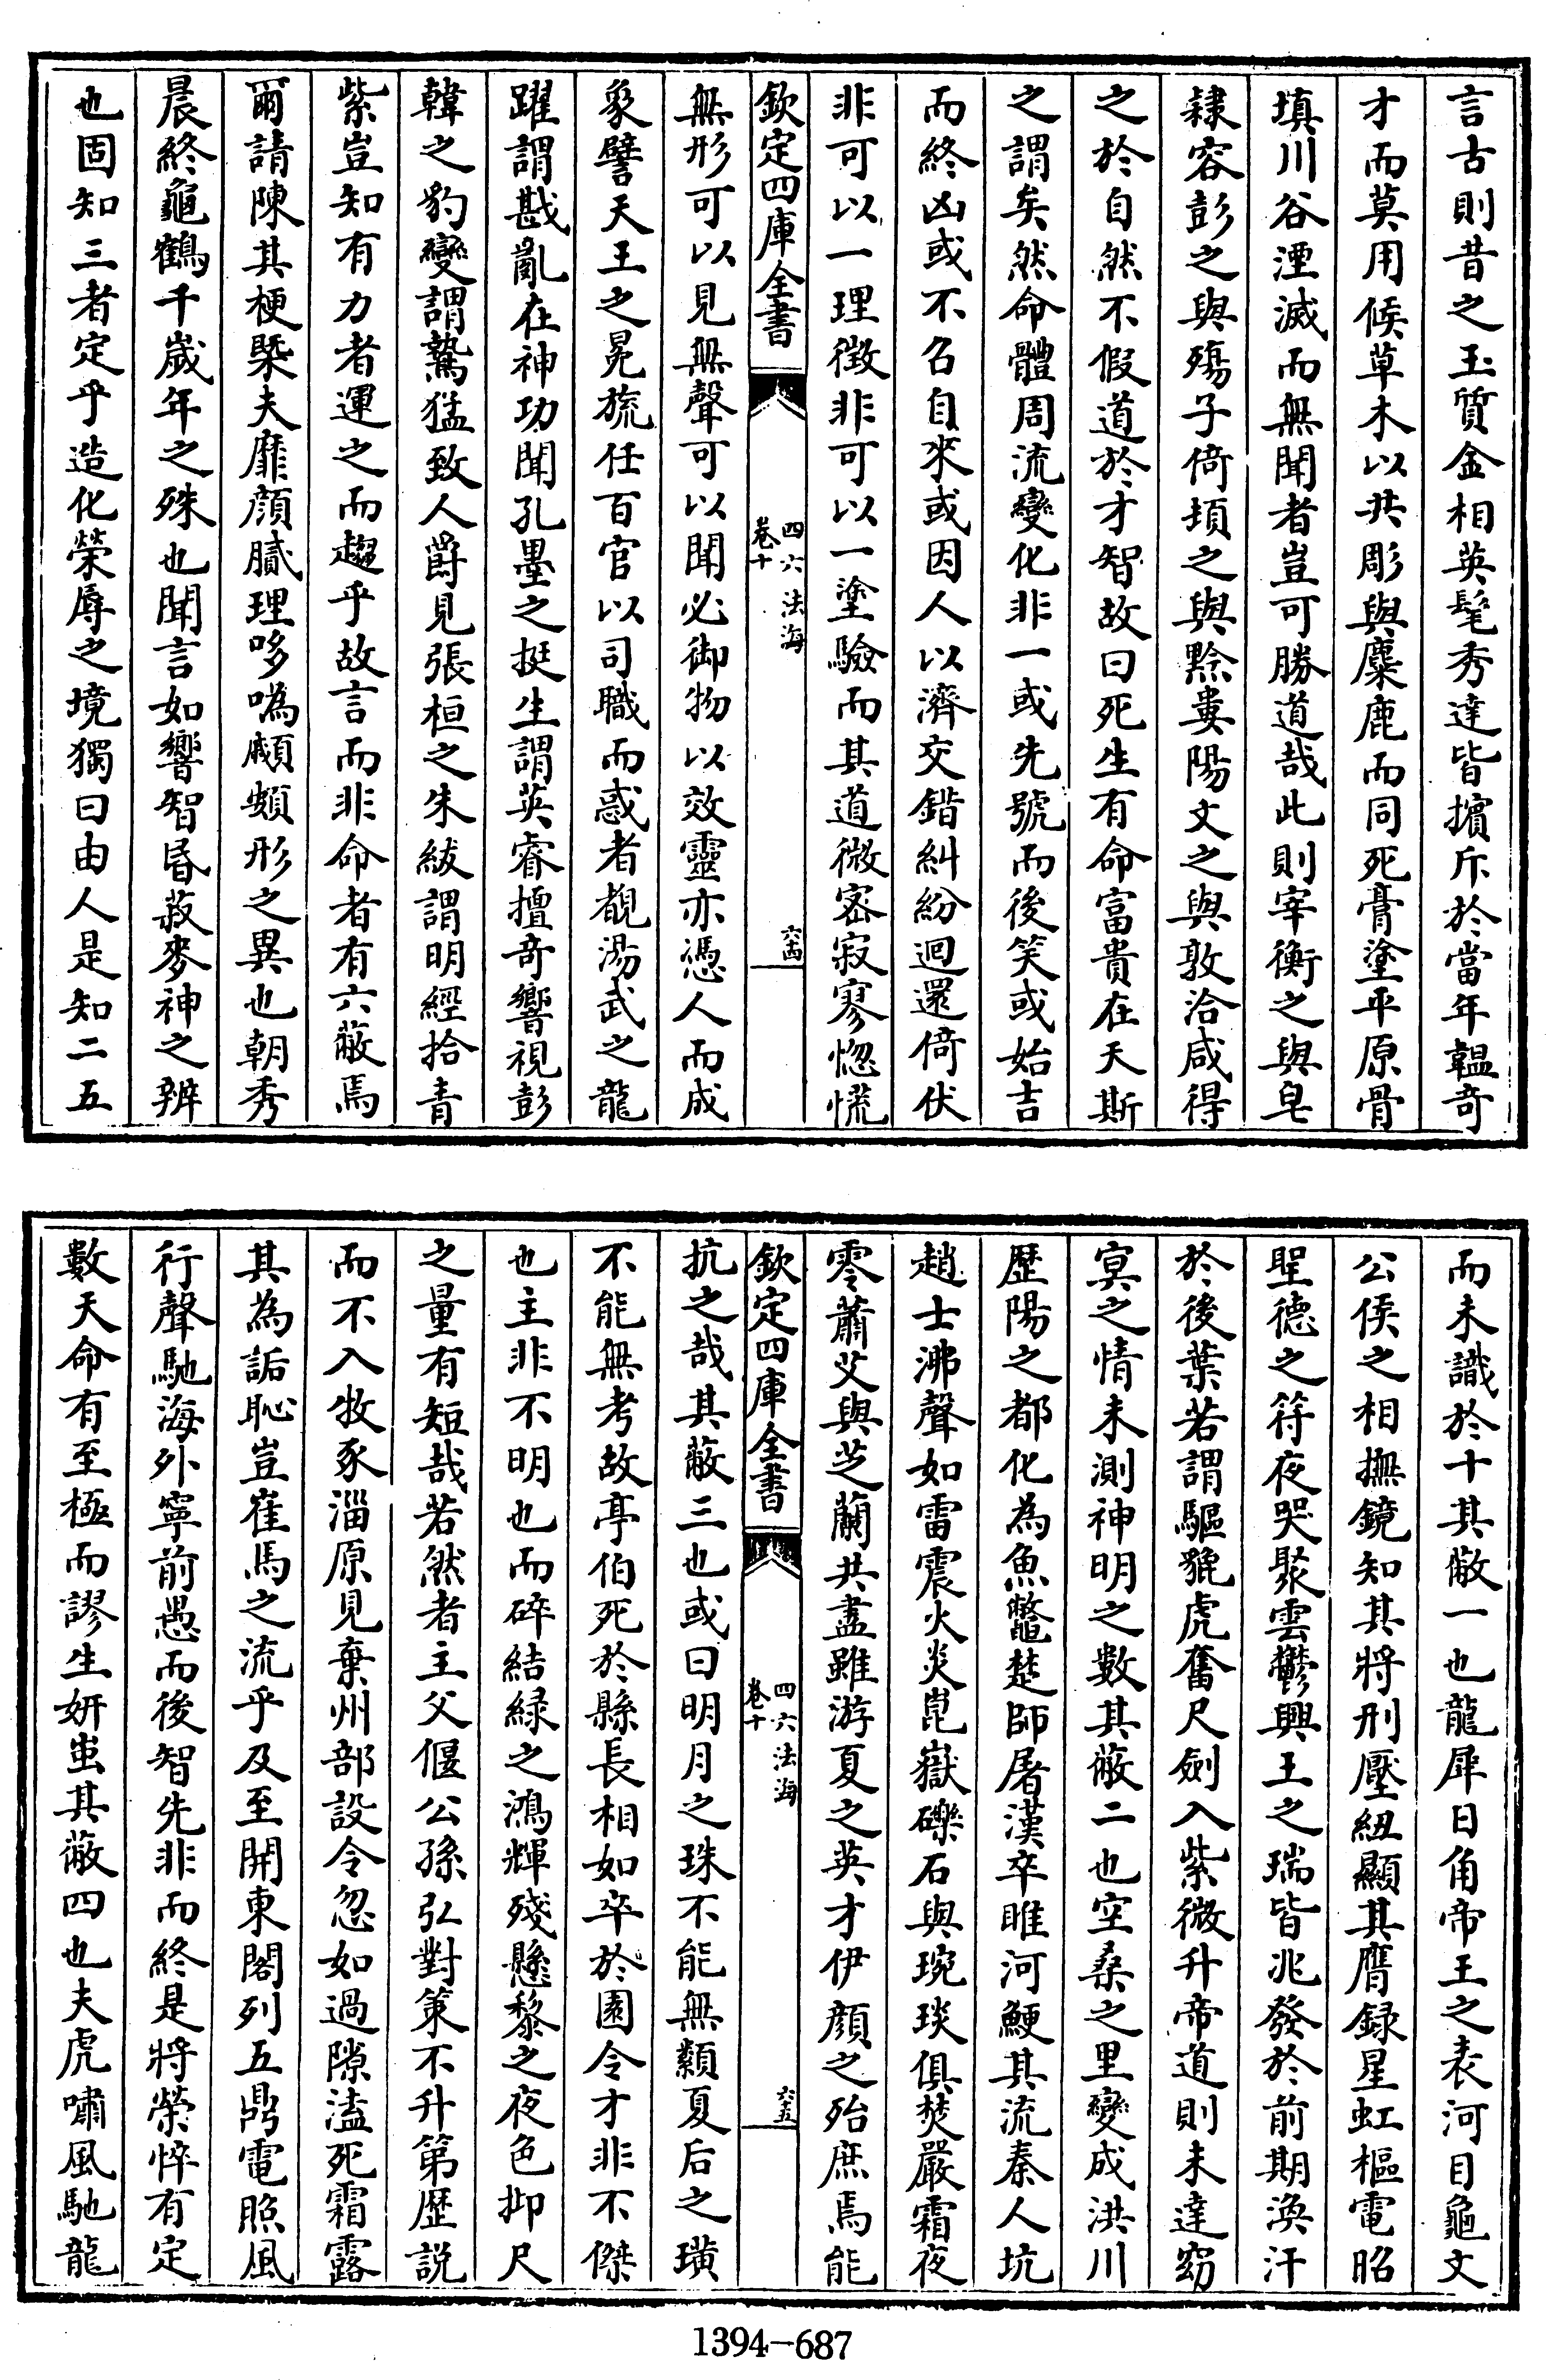 言古則昔之玉質金相英髦秀達皆擯斥於當年韞奇
才而莫用候草木以共彫與麋鹿而同死膏塗平原骨
填川谷湮滅而無聞者豈可勝道哉此則宰衡之與皂
隸容彭之與殤子倚頓之與黔婁陽文之與敦洽咸得
之於自然不假道於才智故曰死生有命富貴在天斯
之謂矣然命體周流變化非一或先號而後笑或始吉
而終凶或不召自來或因人以濟交錯糾紛迴還倚伏
非可以一理徵非可以一塗驗而其道微密寂寥惚慌
欽定四庫全書
四六法海
卷十
六十四
無形可以見無聲可以聞必御物以效靈亦憑人而成
象譬天王之冕旒任百官以司職而惑者覩湯武之龍
躍謂戡亂在神功聞孔墨之挺生謂英睿擅奇響視彭
韓之豹變謂鷙猛致人爵見張桓之朱紱謂明經拾青
紫豈知有力者運之而趨乎故言而非命者有六蔽焉
爾請陳其梗槩夫靡顔膩理哆噅顣頞形之異也朝秀
晨終龜鶴千歲年之殊也聞言如響智昏菽麥神之辨
也固知三者定乎造化榮辱之境獨曰由人是知二五
而未識於十其蔽一也龍犀日角帝王之表河目龜文
公侯之相撫鏡知其將刑壓紐顯其膺録星虹樞電昭
聖德之符夜哭聚雲鬱興王之瑞皆兆發於前期渙汗
於後葉若謂驅貔虎奮尺劍入紫微升帝道則未達窈
冥之情未測神明之數其蔽二也空桑之里變成洪川
歴陽之都化為魚鼈楚師屠漢卒睢河鯁其流秦人坑
趙士沸聲如雷震火炎崑嶽礫石與琬琰俱焚嚴霜夜
零蕭艾與芝蘭共盡雖游夏之英才伊顔之殆庶焉能
欽定四庫全書
四六法海
卷十
六十五
抗之哉其蔽三也或曰明月之珠不能無纇夏后之璜
不能無考故亭伯死於縣長相如卒於園令才非不傑
也主非不明也而碎結緑之鴻輝殘懸黎之夜色抑尺
之量有短哉若然者主父偃公孫弘對策不升第歴説
而不入牧豕淄原見棄州部設令忽如過隙溘死霜露
其為詬恥豈崔馬之流乎及至開東閣列五鼎電照風
行聲馳海外寧前愚而後智先非而終是將榮悴有定
數天命有至極而謬生妍蚩其蔽四也夫虎嘯風馳龍
1394-687